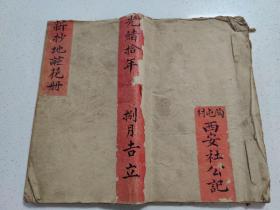 光緒拾年 捌月吉立
陶屯村
西安社公記
新抄地畝花册